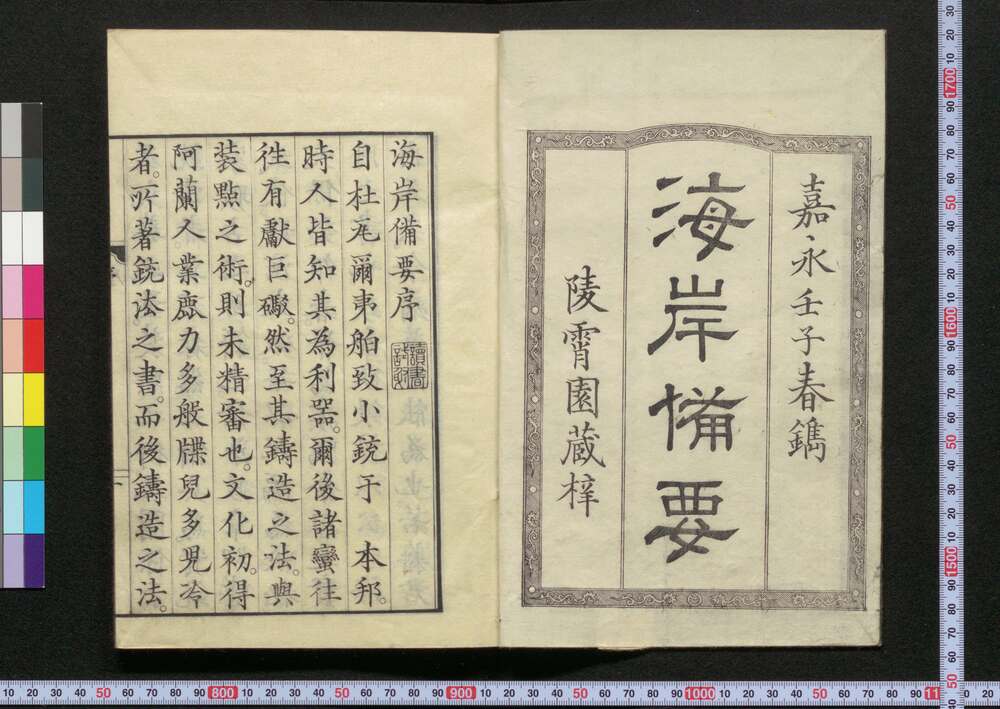 嘉永壬子春鐫
海岸備要
陵霄園蔵梓
海岸備要序
自杜尼爾夷舶致小銃于 本邦。
時人皆知其為利器。爾後諸蠻往
徃有獻巨礮。然至其鑄造之法。與
装點之術。則未精審也。文化初。得
阿蘭人業鹿力多般牒兒多児冷
者。所著銃法之書。而後鑄造之法。